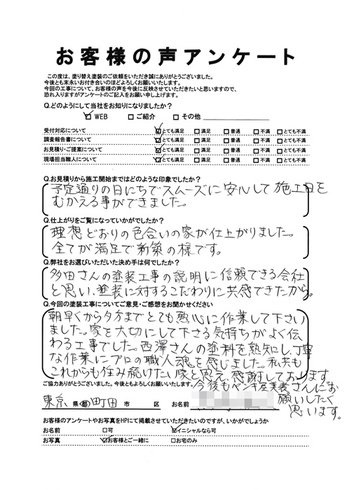 お客様の声アンケート
この度は、塗り替え塗装のご依頼をいただき誠にありがとうございました。
今後とも末永いお付き合いのほどよろしくお願いいたします。
今回の工事について、お客様の声を今後に反映させていただきたいと思いますので、
恐れ入りますがアンケートのご記入をお願い申し上げます。
Q.どのようにして当社をお知りになりましたか?
☑WEB □ご紹介 □その他
受付対応について ☑とても満足 □満足 □普通 □不満 □とても不満
調査報告書について ☑とても満足 □満足 □普通 □不満 □とても不満
お見積り・ご提案について ☑とても満足 □満足 □普通 □不満 □とても不満
現場担当職人について ☑とても満足 □満足 □普通 □不満 □とても不満
Q.お見積りから施工開始まではどのような印象でしたか?
予定通りの日にちでスムーズに安心して施工日を
むかえる事ができました。
Q.仕上がりをご覧になっていかがでしたか?
理想どおりの色合いの家が仕上がりました。
全てが満足で新築の様です。
Q.弊社をお選びいただいた決め手は何でしたか?
多田さんの塗装工事の説明に信頼できる会社
と思い、塗装に対するこだわりに共感できたから。
Q.今回の塗装工事についてご意見・ご感想をお聞かせください
朝早くから夕方までとても熱心に作業して下さい
ました。家を大切にして下さる気持ちがよく伝
わる工事でした。西澤さんの塗料を熟知し丁寧
な作業にプロの職人魂を感じました。私共も
これからも住み続けたい家と思え感謝しております
ご協力ありがとうございました。今後ともよろしくお願いいたします。
今後もペイント
さんにお
願いしたく
思います。
東京 県・都 町田 市 区 お名前
お客様のアンケートやお写真をHPにて掲載させていただきたいのですが、いかがでしょうか
お名前 □可 ☑イニシャルなら可
お写真 ☑お客様とご一緒に □お宅のみ